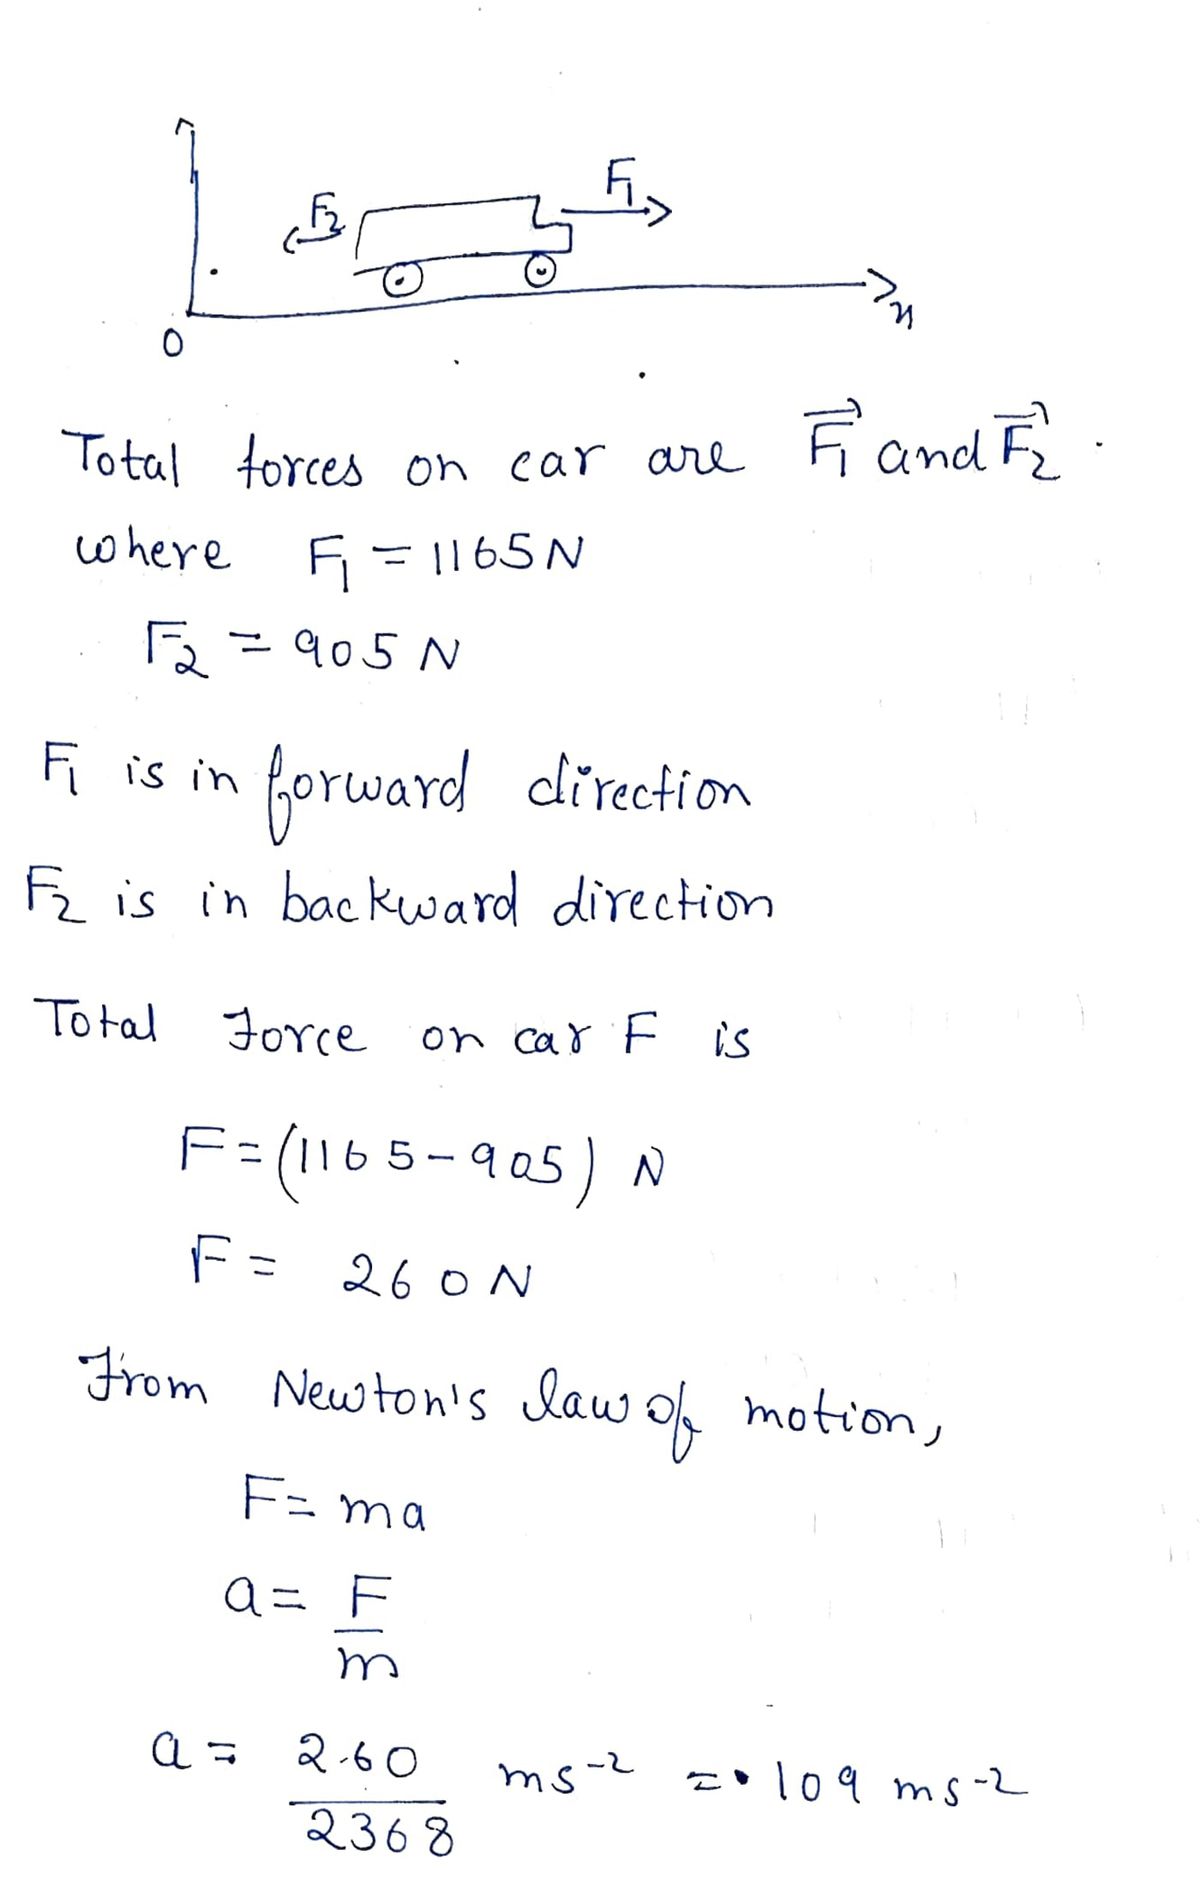 F₂
F₁
x
0
Total forces on car are F₁ and F₂.
where F₁ = 1165N
F₂ = 905 N
F₁ is in forward direction
F₂ is in backward direction
Total Force on car F is
F = (1165 - 905) N
F = 260 N
From Newton's law of motion,
F = ma
a = F/m
a = 2.60/2368 ms⁻² = .109 ms⁻²